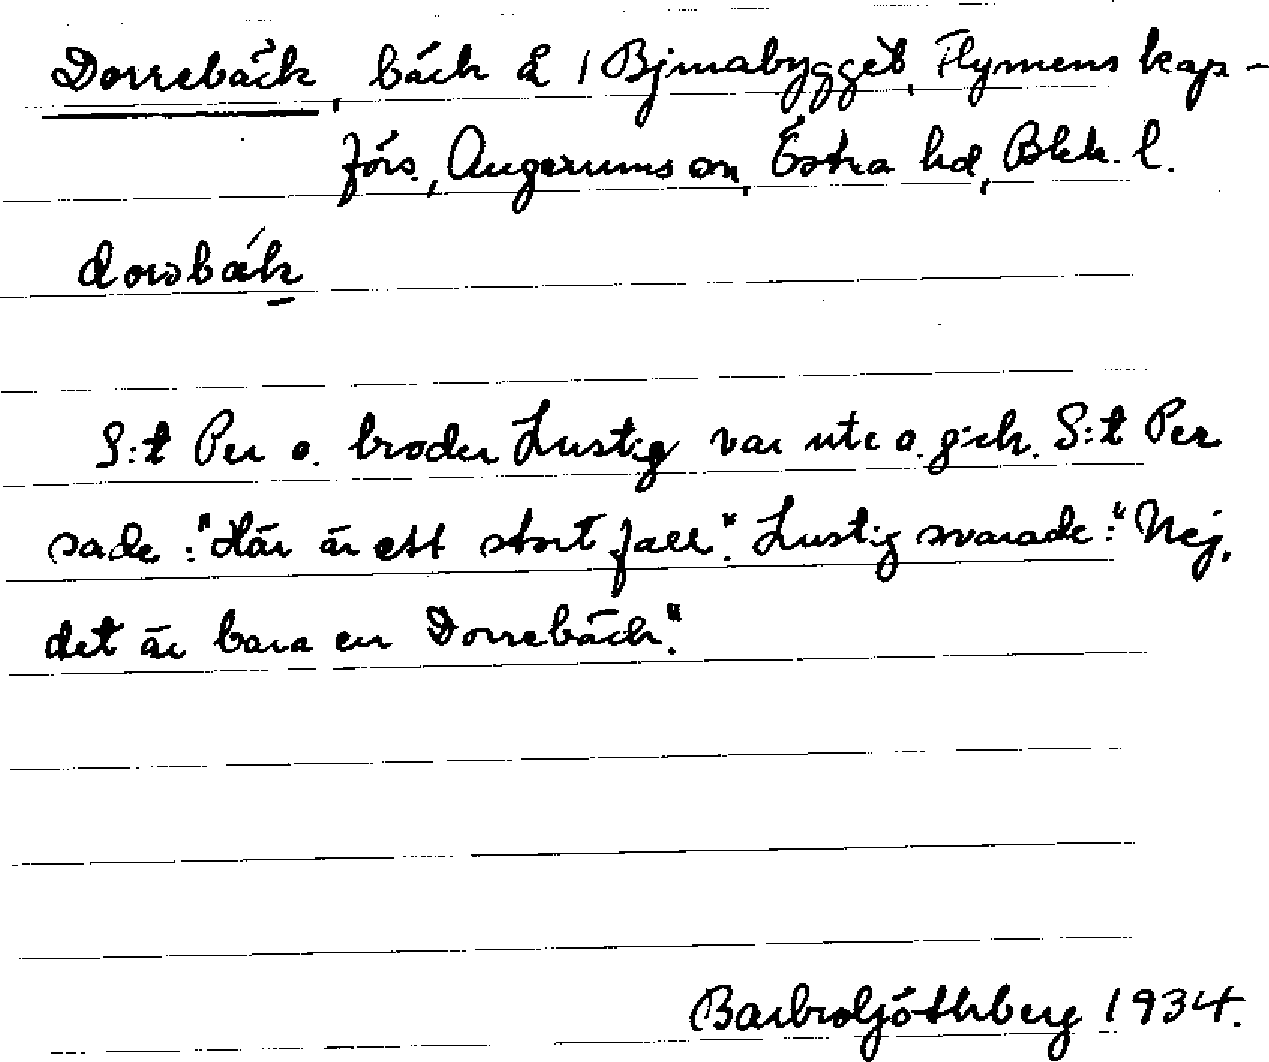 Dorrebäck, bäck å 1 Bjmabygget, Flymens kap-
förs., Augerums sn, Östra hd, Blek. l.
dorəbäk
S:t Per o. broder Lustig var ute o. gick. S:t Per
sade: "Här är ett stort fall". Lustig svarade: "Nej,
det är bara en Dorrebäck".
Barbro Göthberg 1934.